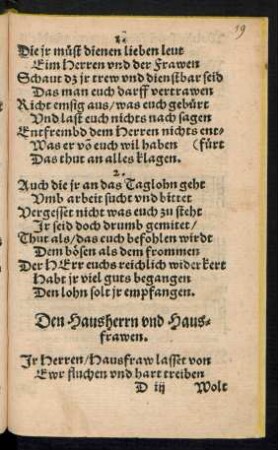 19
1.
Die jr müst dienen lieben leut
Eim Herren vnd der Frawen
Schaut dz jr trew vnd dienstbar seid
Das man euch darff vertrawen
Richt emsig aus/was euch gebürt
Vnd last euch nichts nach sagen
Entfreimbd dem Herren nichts ent-
Was er võ euch wil haben (fürt
Das thut an alles klagen.
2.
Auch die jr an das Taglohn geht
Vmb arbeit sucht vnd bittet
Vergesset nicht was euch zu steht
Jr seid doch drumb gemitet/
Thut als/das euch befohlen wirdt
Dem bösen als dem frommen
Der HErr euchs reichlich widerkert
Habt jr viel guts begangen
Den lohn solt jr empfangen.
Den Hausherrn vnd Haus-
frawen.
Jr Herren/Hausfraw lasset von
Ewr fluchen vnd hart treiben
D iij Wolt